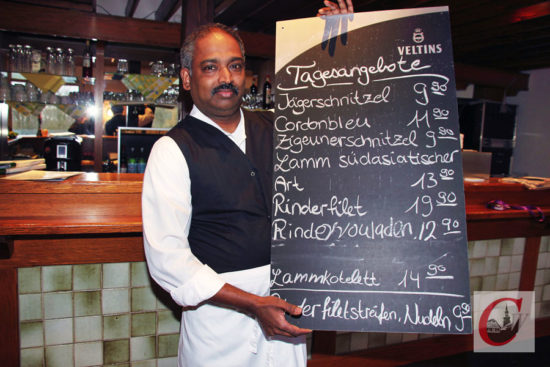 VELTINS
Tagesangebote
Jägerschnitzel 9 90
Cordonbleu 11 90
Zigeunerschnitzel 9 90
Lamm südasiatischer
Art 13 90
Rinderfilet 19 90
Rinderrouladen, 12 90
Lammkotelett 14 90
Rinderfiletstreifen, Nudeln 9 90